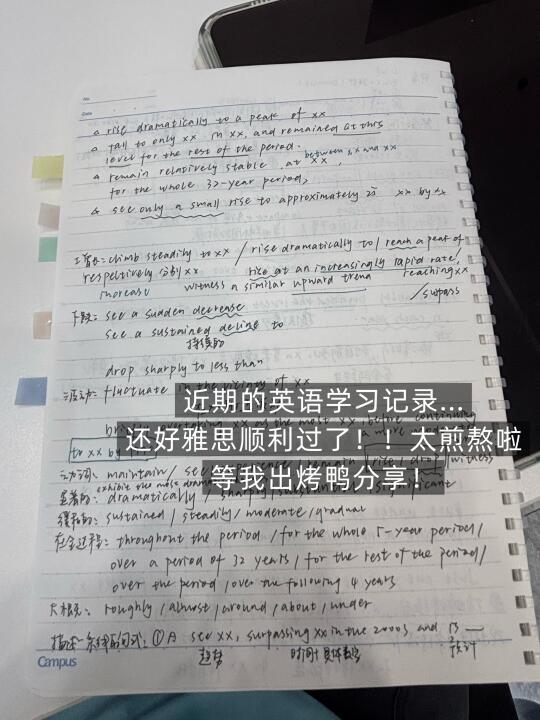 No.
Date
rise dramatically to a peak of xx
fall to only xx in xx, and remained at this
level for the rest of the period.
remain relatively stable at xx, between xx and xx
for the whole 32-year period,
see only a small rise to approximately xx by xx
climb steadily to xx / rise dramatically to / reach a peak of
respectively 分别 xx rise at an increasingly rapid rate,
increase witness a similar upward trend reaching xx
/ surpass
下跌: see a sudden decrease
see a sustained decline to
持续的
drop sharply to less than
波动: fluctuate in the vicinity of xx
近期的英语学习记录...
xx as the most xx, before continuing
还好雅思顺利过了！！太煎熬啦
to xx by
等我出烤鸭分享！
动词: maintain / see remain rise / drop / witness
exhibit the most
显著的: dramatically / sharply / significant
缓和的: sustained / steadily / moderate / gradual
在全过程: throughout the period / for the whole 5-year period /
over a period of 32 years / for the rest of the period /
over the period / over the following 4 years
大概: roughly / almost / around / about / under
描述一条线的句式: ① A see xx, surpassing xx in the 2000s and
趋势 时间+具体数字 预计
Campus